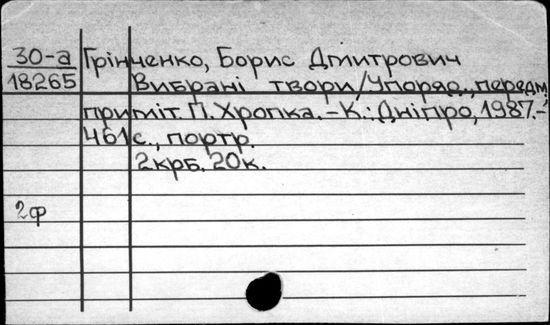 30-а Грінченко, Борис Дмитрович
18265 Вибрані твори/Упоряд., передм
приміт. П. Хропка. -К.: Дніпро, 1987.-
461с., портр.
2крб. 20к.
2ф